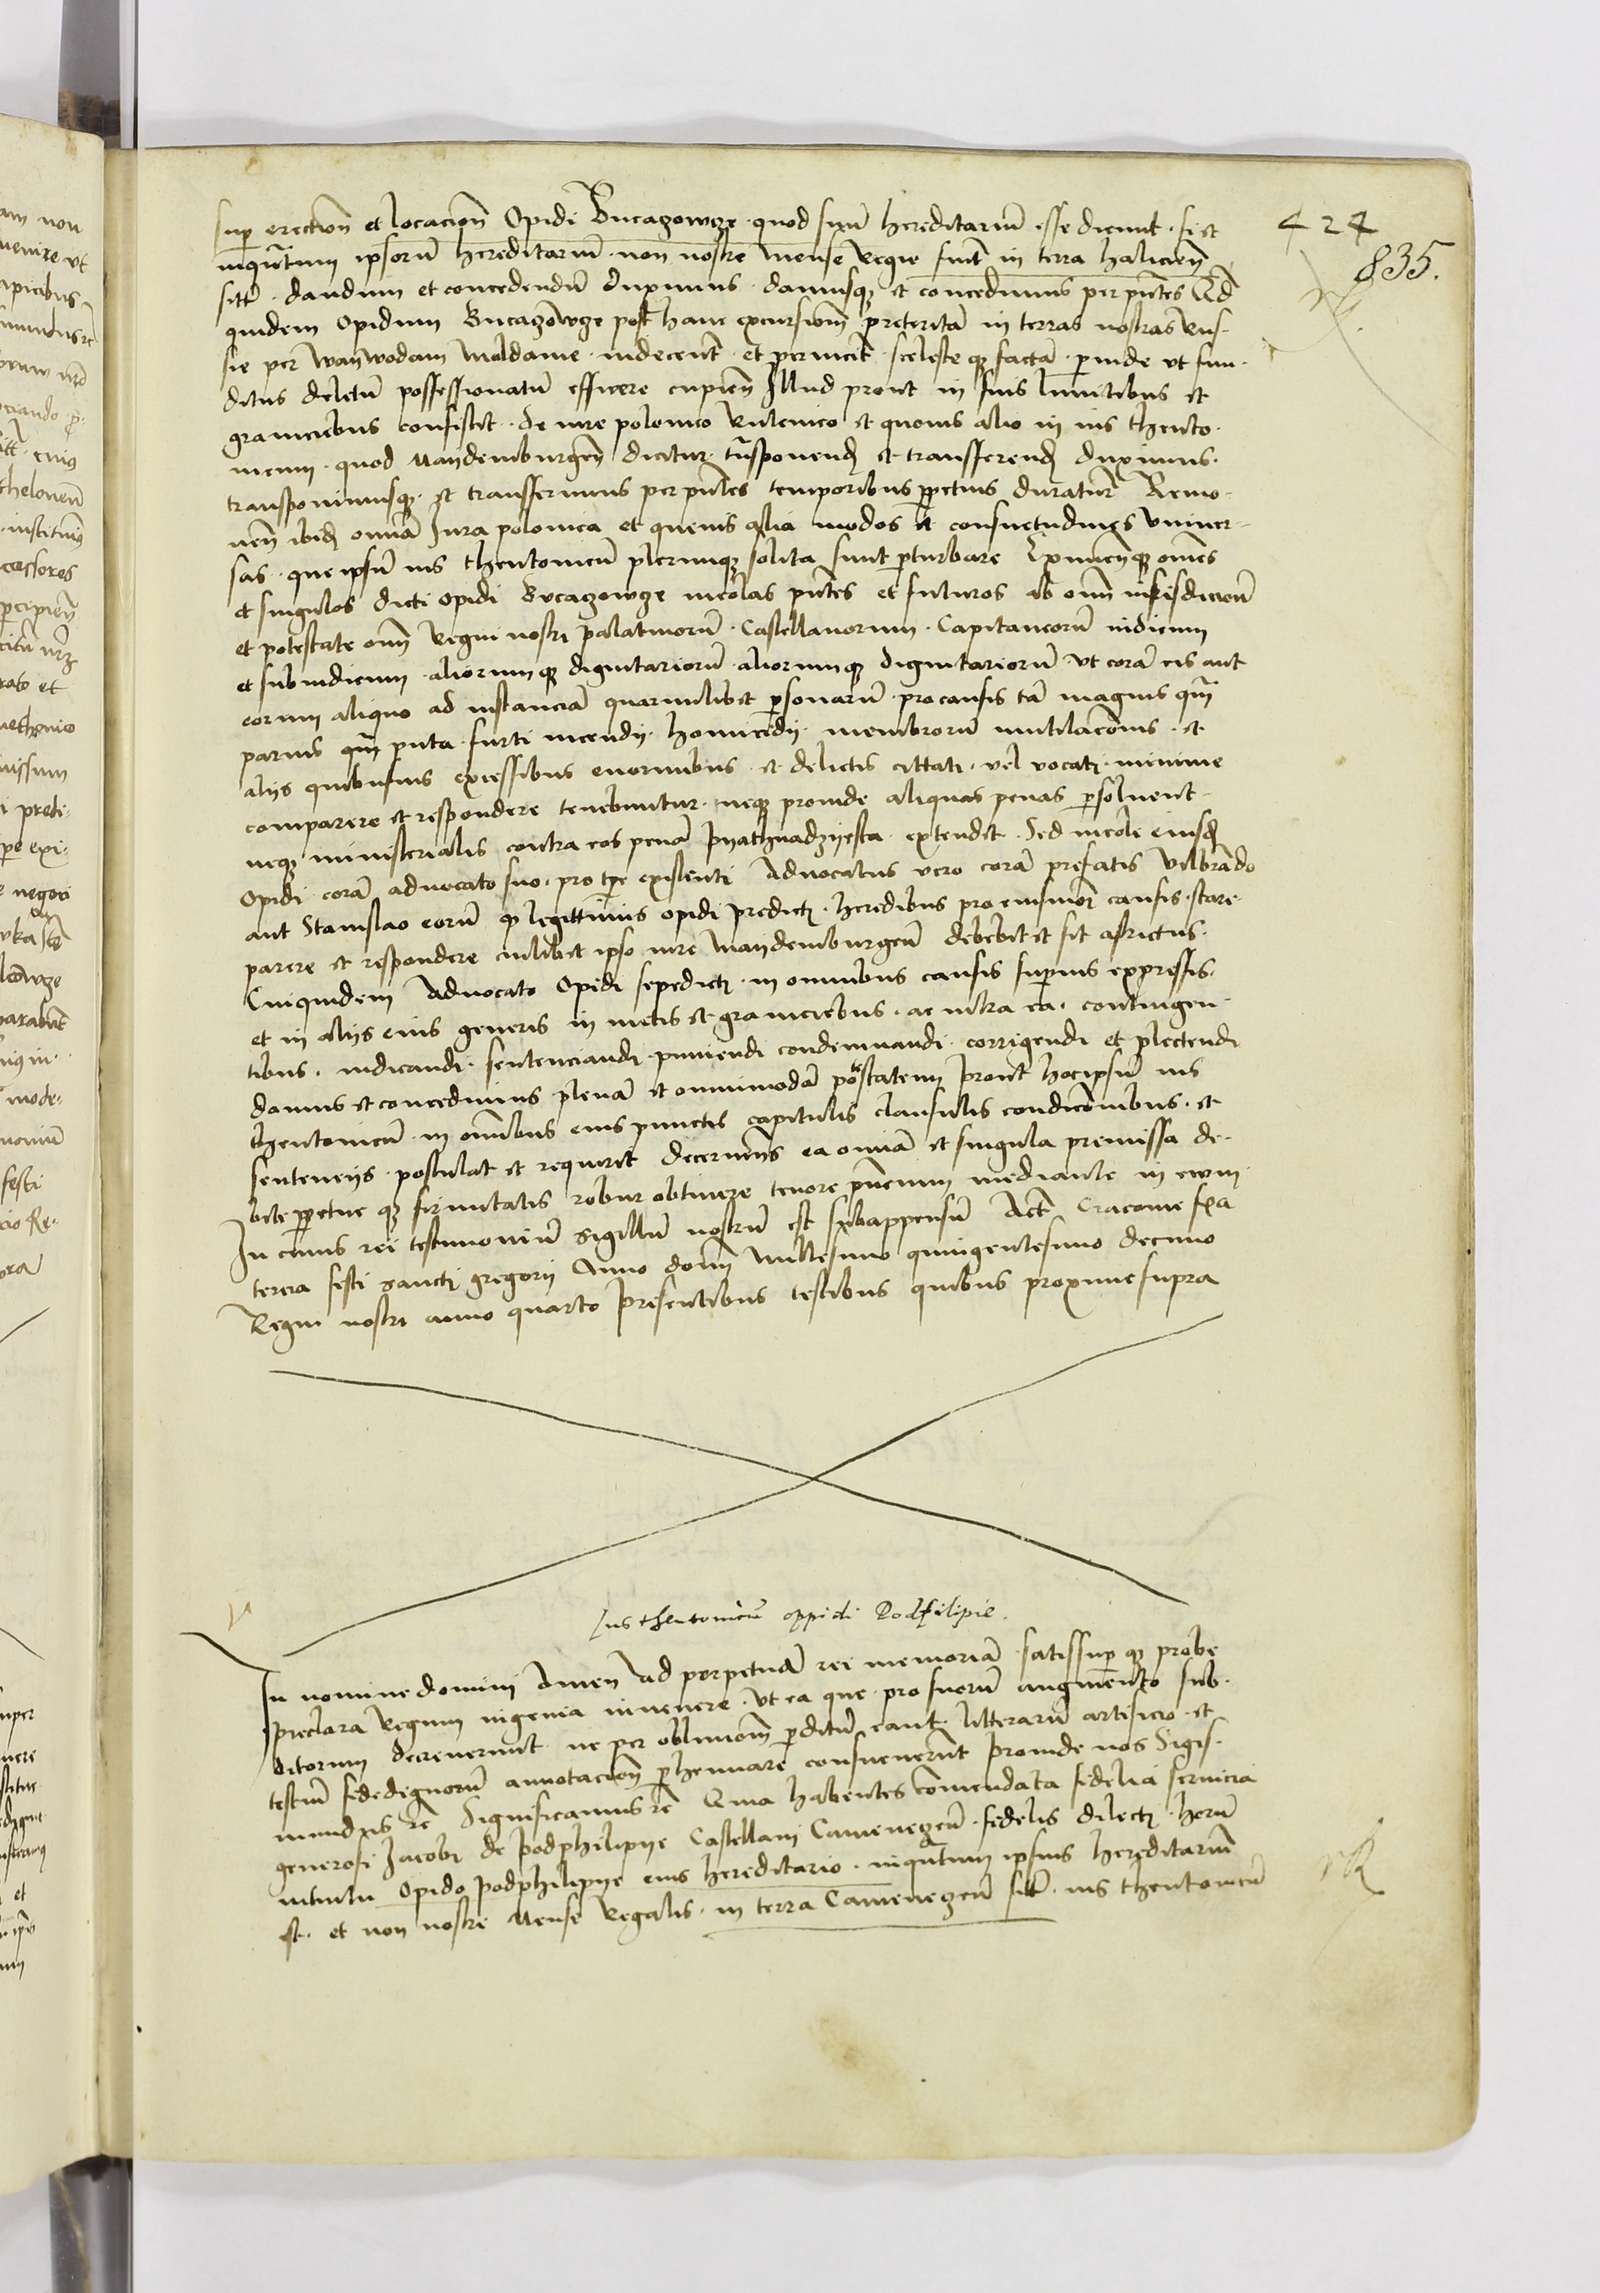 424
835.
sup erectioñ et locacioñ Opidi Bucazowcze quod suũ hereditariũ esse dicunt. si et
inqũtum ipsorũ hereditariũ non nostre mense Regie fuit in terra halicieñ
sitũ. dandum et concedendũ duximus. damusqz et concedimus per pñtes Qd
quidem Opidum Bucazowcze post hanc excursioñ preteritã in terras nostras Rus-
sie per waywodam moldauie. indecent et pernicit sceleste qz factã. perinde vt fun-
ditus deletũ possessionatũ efficere cupieñ Illud prout in suis limitibus et
graniciebus consistit. de iure polonico Rutenico et quouis alio in ius theuto-
nicum. quod maydemburgeñ dicitur. trãsponend et transferend duximus.
transponimusqz. et transferimus per pñtes temporibus ppetuis duratur Remo-
ueñ ibid omia Jura polonica et queuis alia modos et consuetudines vniuer-
sas. que ipsũ ius theutonicũ plerumqz solita sunt pturbare Eximeñqz omes
et singulos dicti opidi Bucazowcze incolas pñtes et futuros ab omi iurisdicioñ
et potestate omi Regni nostri palatinorũ. Castellanorum. Capitaneorũ iudicum
et subiudicum. aliorumqz dignitariorũ aliorumqz dignitariorũ vt corã eis aut
eorum aliquo ad instanciã quarumlibet psonarũ. pro causis tã magnis qm
paruis qm puta. furti incendij. homicidij. membrorũ mutilacõnis. et
alijs quibusuis excessibus enormibus. et delictis cittati. vel vocati. minime
comparere et respondere tenebuntur. neqz proinde aliquas penas psoluent-
neqz ministerialis contra eos penã pyathnadzyesta. extendet. Sed incole eiusd
Opidi corã aduocato suo. pro tpe existenti Aduocatus vero corã prefatis vilbrãdo
aut Stanislao eorũ qz legittimis opidi predicti. heredibus pro eiusmõi causis. stare-
parere et respondere cuilibet ipso iure maydemburgeñ debebit et sit astrictus.
Cuiquidem Aduocato Opidi sepedicti. in omnibus causis supius expressis.
et in alijs eius generis in metis et granicebus. ac intra ea. contingen-
tibus. iudicandi. sentenciandi. puniendi condemnandi. corrigendi et plectendi
damus et concedimus plenã et omnimodã potestatem prout hoc ipsũ ius
theutonicũ. in omibus eius punctis capitulis clausulis condicõnibus. et
sentencijs. postulat et requirit decernẽtes ea omia et singula premissa de-
bite ppetue qz firmitatis robur obtinere tenore pñcium mediante in ewm
In cuius rei testimoniũ sigillũ nostrũ est subappensũ Act Cracouie fia
tercia festi sancti gregorij Anno domi millesimo quingentesimo decimo
Regni nostri anno quarto presentibus testibus quibus proxime supra
Jus theutonicũ oppidi Podfilipie.
In nomine domini Amen Ad perpetuã rei memoriã. satissup qz probe
preclara Regum ingenia inuenere. vt ea que. pro suorũ augmento sub-
ditorum decreuerunt. ne per obliuioñ perditũ eant. litterarũ artificio. et
testiũ fidedignorũ annotacioñ phennare consueuerũt proinde nos Sigis-
mundus rẽ Significamus rẽ Quia habentes cõmendata fidelia seruicia
generosi Jacobi de podphilipye Castellani Cameneczeñ. fidelis dilecti. horũ
intuitu Opido podphilipye eius hereditario. inqũtum ipsius hereditariũ
est. et non nostre Mense Regalis. in terra Cameneczeñ sitũ. ius theutonicũ